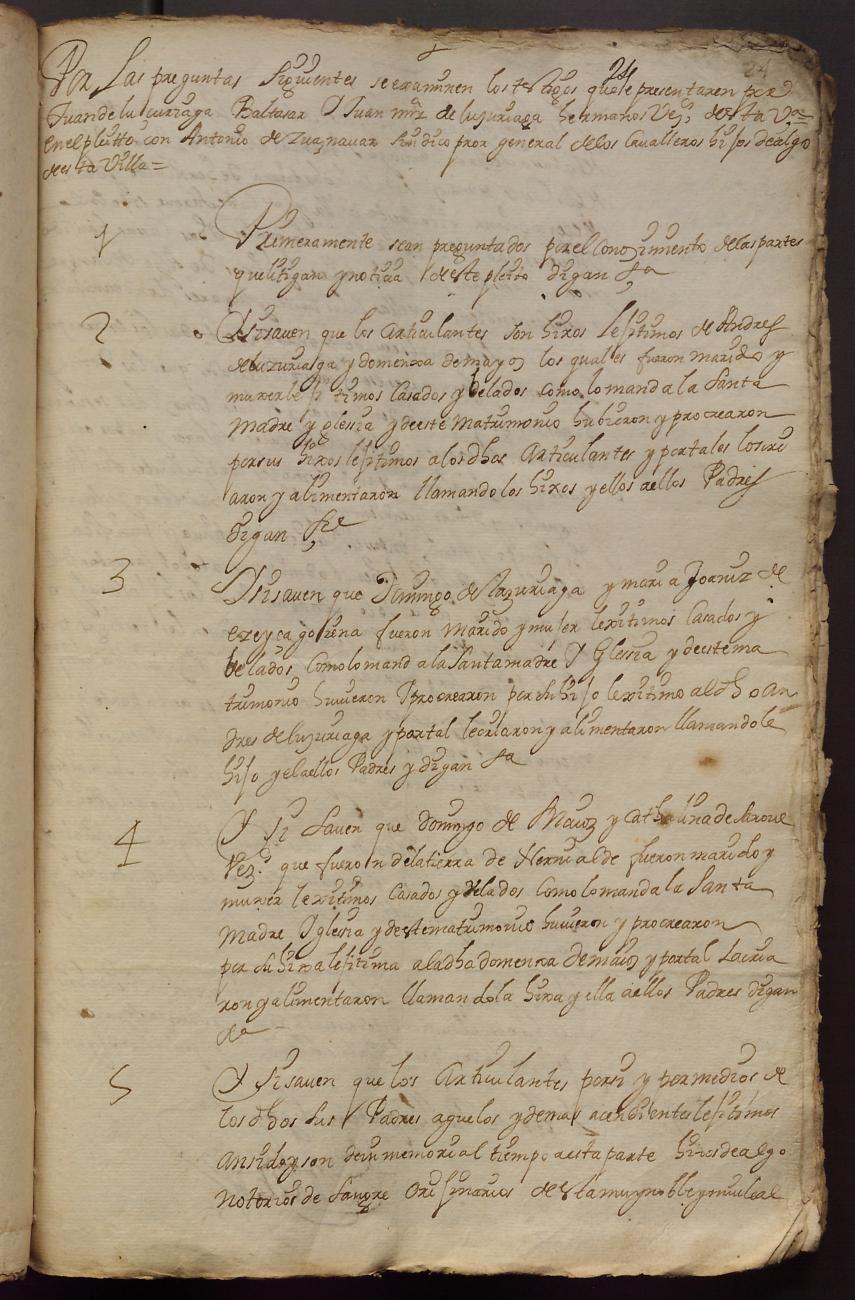 24
24
Por Las preguntas siguientes se examinen los testigos que se presentaren por
Juan de luçurriaga Baltasar Y Juan mrz de luzuriaga hermanos Vezs desta Va=
en el pleitto con Antonio de Zuaznavar Sindico pror general delos Cavalleros hijos dealgo
desta Villa=
1
Primeramente sean preguntados por el Conozimiento delas partes
que litigan y noticia deste pleito digan &a
2
Y si saven que los articulantes son hixos Lesitimos de Andres
de luzuriaga y domenxa de mayoz los quales fueron marido y
muxer lesitimos Casados y Velados como lo manda la Santa
Madre yglesia y de este Matrimonio hubieron y procrearon
por sus hixos lesitimos a los dhos articulantes y por tales los cri
aron y alimentaron llamandolos hixos y ellos aellos Padres
digan &a
3
Y si saven que Domingo de Luzuriaga y maria Joaniz de
ezeyzagoiena fueron Marido y mujer lexitimos Casados y
Velados Como lo manda la Santa madre Yglesia y deeste ma
trimonio huvieron Y procrearon por su hijo lexitimo al dho an
dres de luzuriaga y por tal le criaron y alimentaron llamandole
hijo y el aellos Padres y digan &a
4
Y si Saven que domingo de Maioz y Cathalina de Arove
Vezs que fueron de la tierra de Hernialde fueron marido y
muxer lexitimos Casados y Velados Como lo manda la Santa
Madre Yglesia y deste matrimonio huvieron y procrearon
por su hixa lesitima a la dha domenxa de maioz y por tal La cria
ron y alimentaron llamandola hixa y ella aellos Padres digan
&a
5
Y si saven que los articulantes por si y por medios de
los dhos sus Padres aguelos y demas acendientes lesitimos
an sido y son de inmemorial tiempo aesta parte hixos dealgo
notorios de Sangre Orijinarios desta muy noble y mui leal